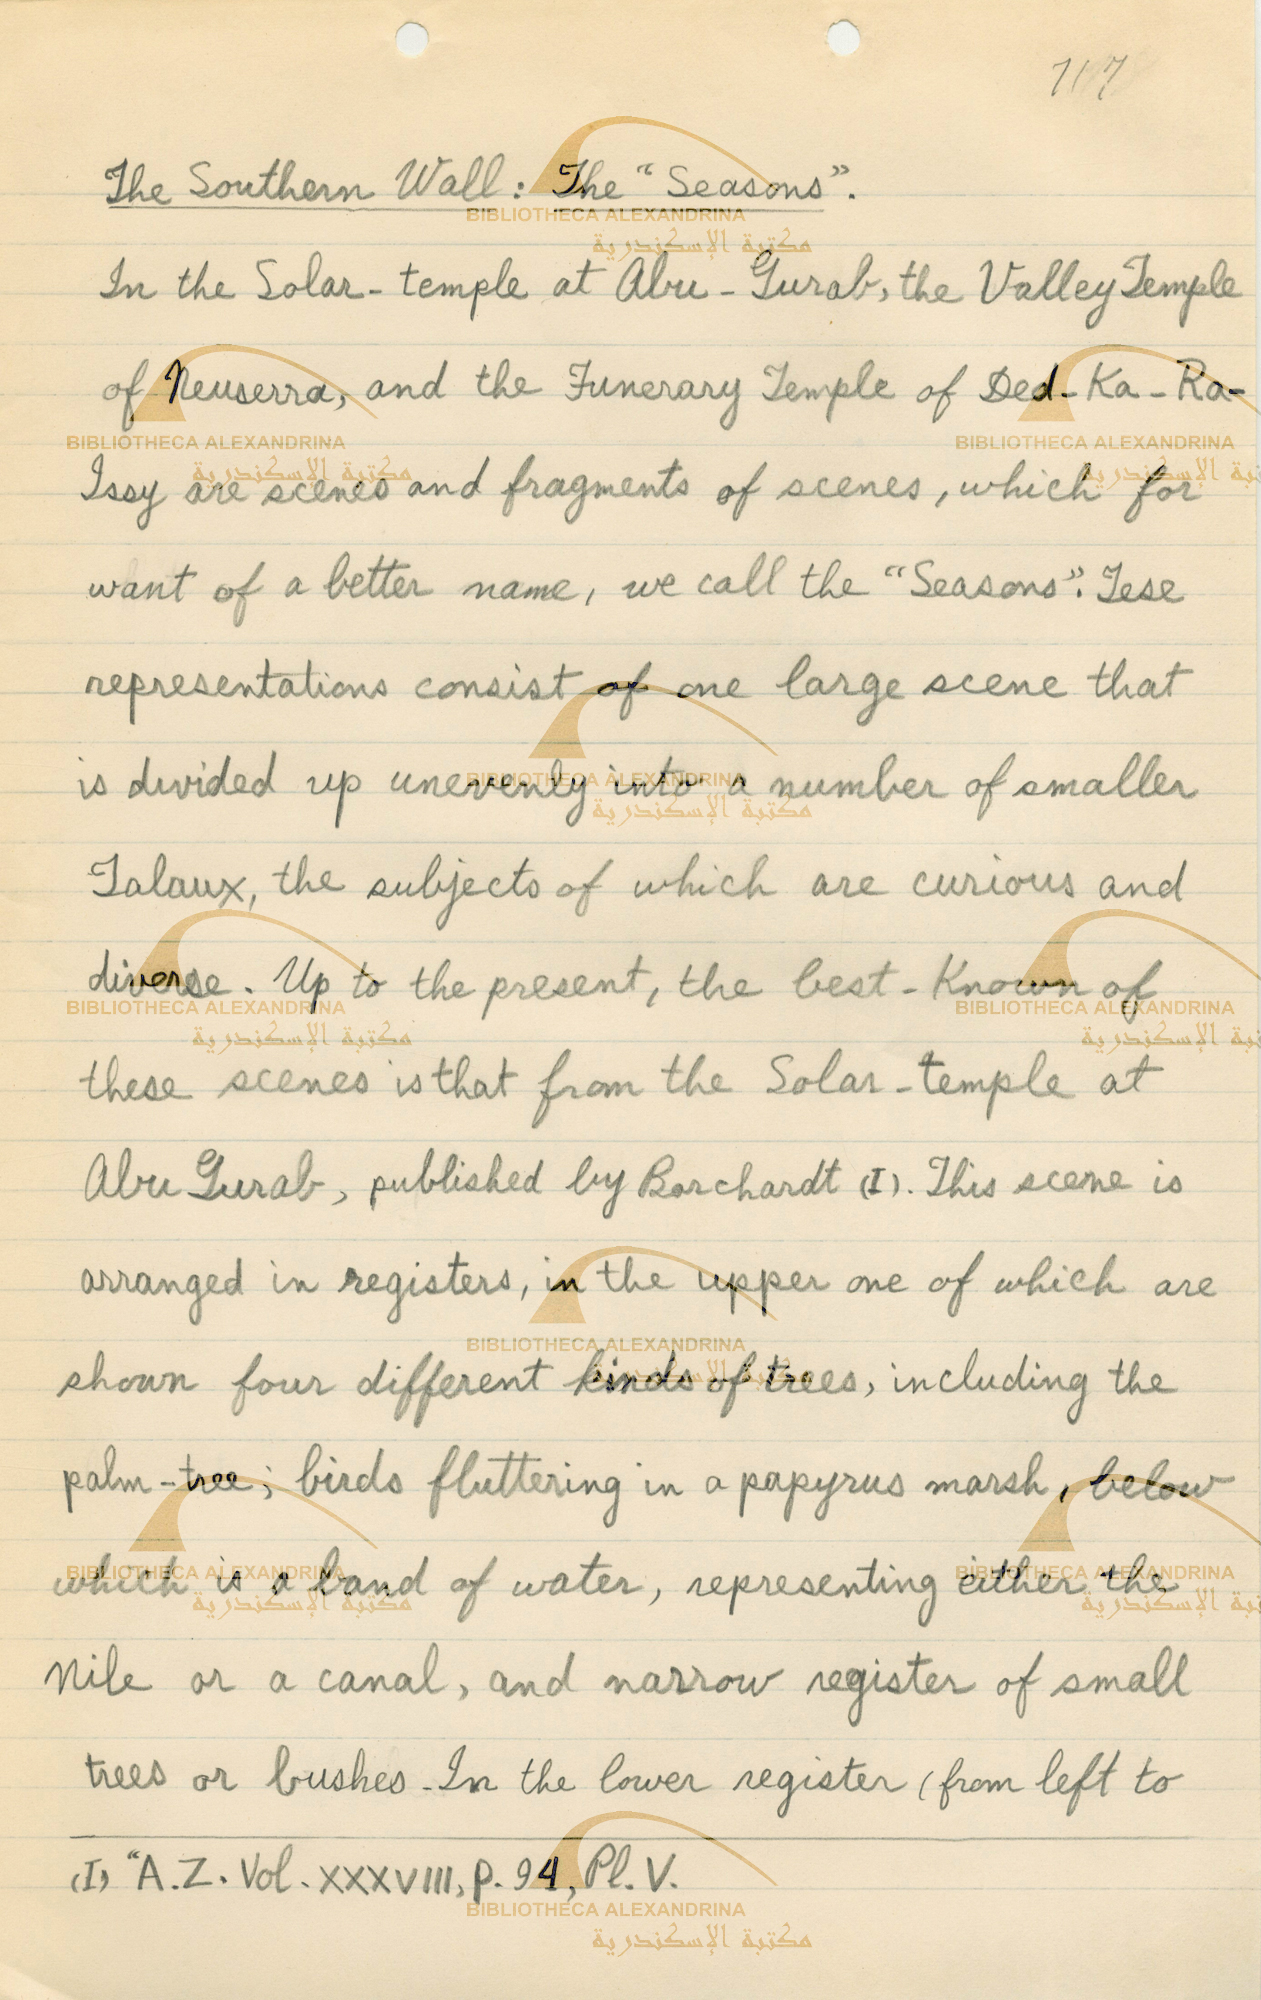 717
The Southern Wall: The "Seasons".
In the Solar-temple at Abu-Gurab, the Valley Temple
of Neuserra, and the Funerary Temple of Ded-Ka-Ra-
Issy are scenes and fragments of scenes, which for
want of a better name, we call the "Seasons". Tese
representations consist of one large scene that
is divided up unevenly into a number of smaller
Talaux, the subjects of which are curious and
diverse. Up to the present, the best-Known of
these scenes is that from the Solar-temple at
Abu Gurab, published by Borchardt (I). This scene is
arranged in registers, in the upper one of which are
shown four different kinds of trees, including the
palm-tree; birds fluttering in a papyrus marsh, below
which is a band of water, representing either the
Nile or a canal, and narrow register of small
trees or bushes. In the lower register (from left to
(I) "A.Z. Vol. XXXVIII, p. 94, Pl. V.
BIBLIOTHECA ALEXANDRINA
مكتبة الإسكندرية